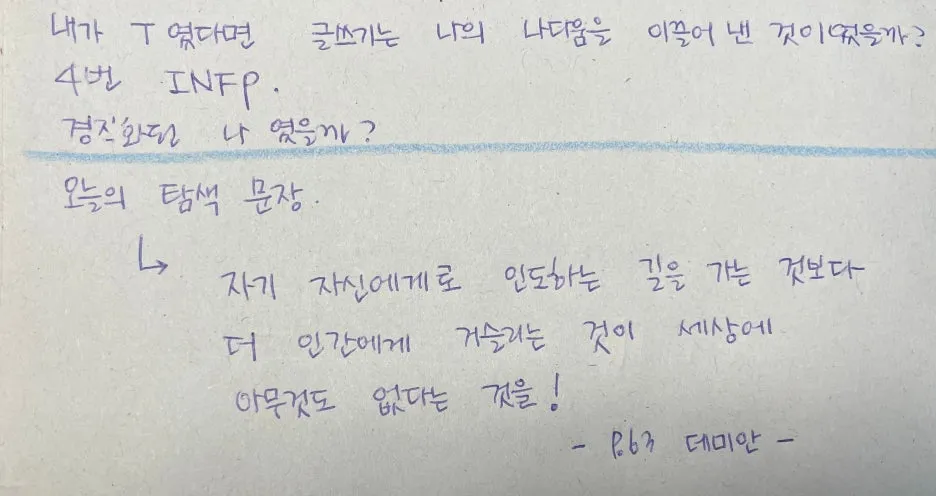 내가 T 였다면 글쓰기는 나의 나다움을 이끌어 낸 것이였을까?
4번 INFP.
경직화된 나 였을까?
오늘의 탐색 문장.
↳ 자기 자신에게로 인도하는 길을 가는 것보다
더 인간에게 거슬리는 것이 세상에
아무것도 없다는 것을!
- P.63 데미안 -